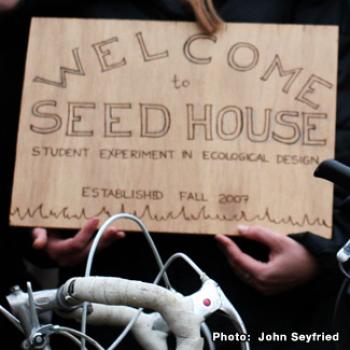 WELCOME
to
SEED HOUSE
STUDENT EXPERIMENT IN ECOLOGICAL DESIGN
ESTABLISHED FALL 2007
Photo: John Seyfried